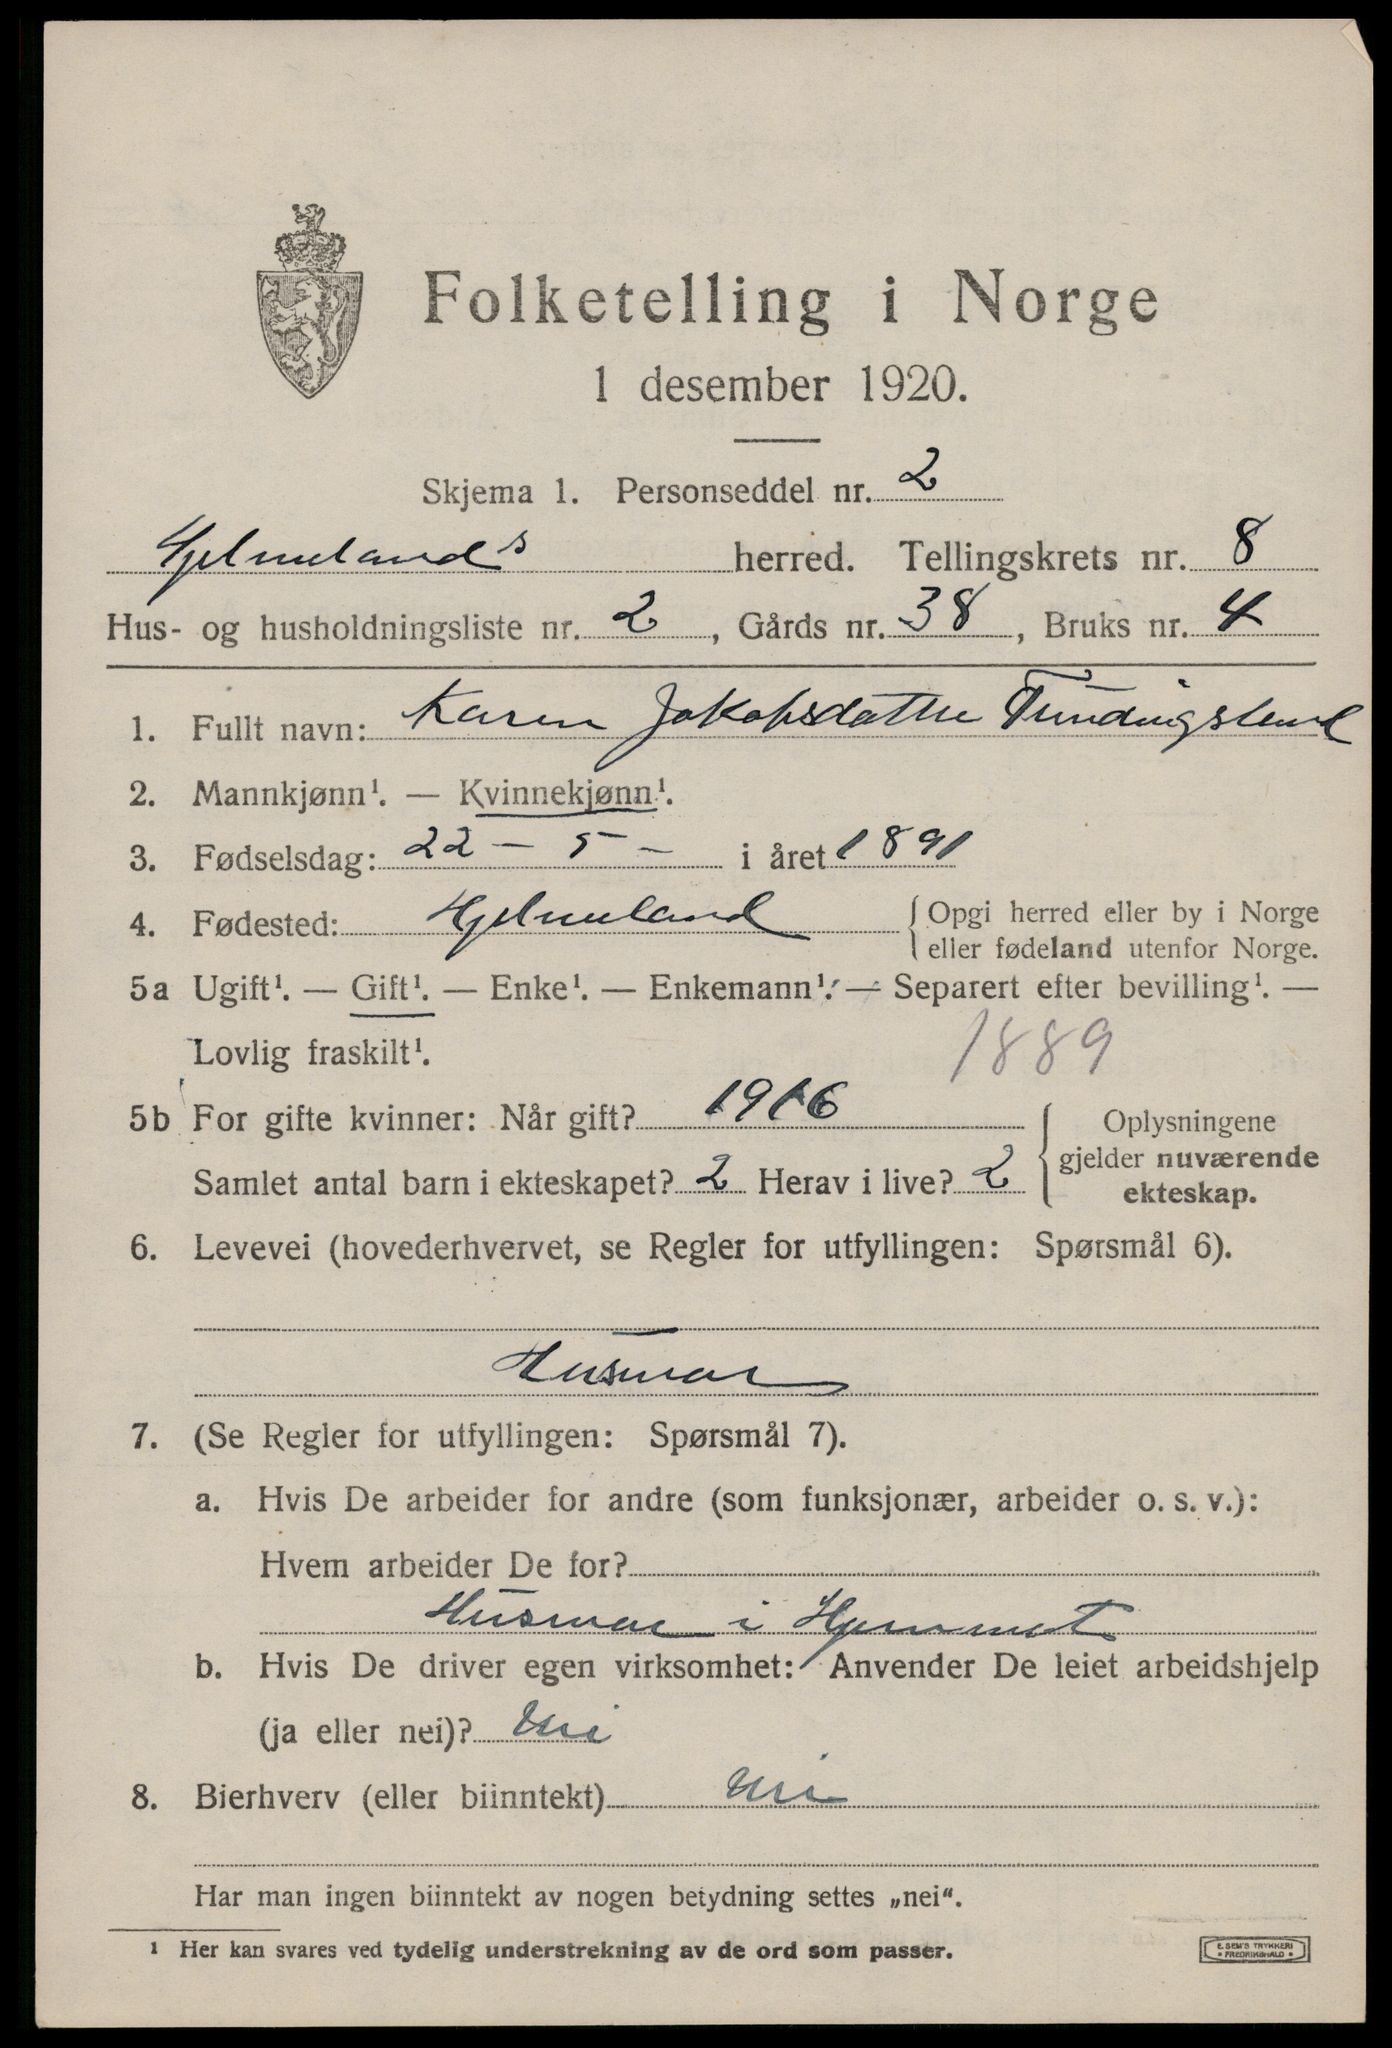 Folketelling i Norge
1 desember 1920.
Skjema 1. Personseddel nr. 2
Hjelmelands herred. Tellingskrets nr. 8
Hus- og husholdningsliste nr. 2, Gårds nr. 38, Bruks nr. 4
1. Fullt navn: Karen Jakobsdatter
2. Mannkjønn¹. — Kvinnekjønn¹.
3. Fødselsdag: 22 – 5 – i året 1891
4. Fødested: Hjelmeland { Opgi herred eller by i Norge
eller fødeland utenfor Norge.
5a Ugift¹. — Gift¹. — Enke¹. — Enkemann¹. — Separert efter bevilling¹. —
Lovlig fraskilt¹.
1889
5b For gifte kvinner: Når gift? 1916
Samlet antal barn i ekteskapet? 2 Herav i live? 2
{ Oplysningene
gjelder nuværende
ekteskap.
6. Levevei (hovederhvervet, se Regler for utfyllingen: Spørsmål 6).
Husmor
7. (Se Regler for utfyllingen: Spørsmål 7).
a. Hvis De arbeider for andre (som funksjonær, arbeider o. s. v.):
Hvem arbeider De for?
Husmor i Hjemmet
b. Hvis De driver egen virksomhet: Anvender De leiet arbeidshjelp
(ja eller nei)? Nei
8. Bierhverv (eller biinntekt) Nei
Har man ingen biinntekt av nogen betydning settes „nei“.
¹ Her kan svares ved tydelig understrekning av de ord som passer.
E. SEM'S TRYKKERI
• FREDRIKSHALD •